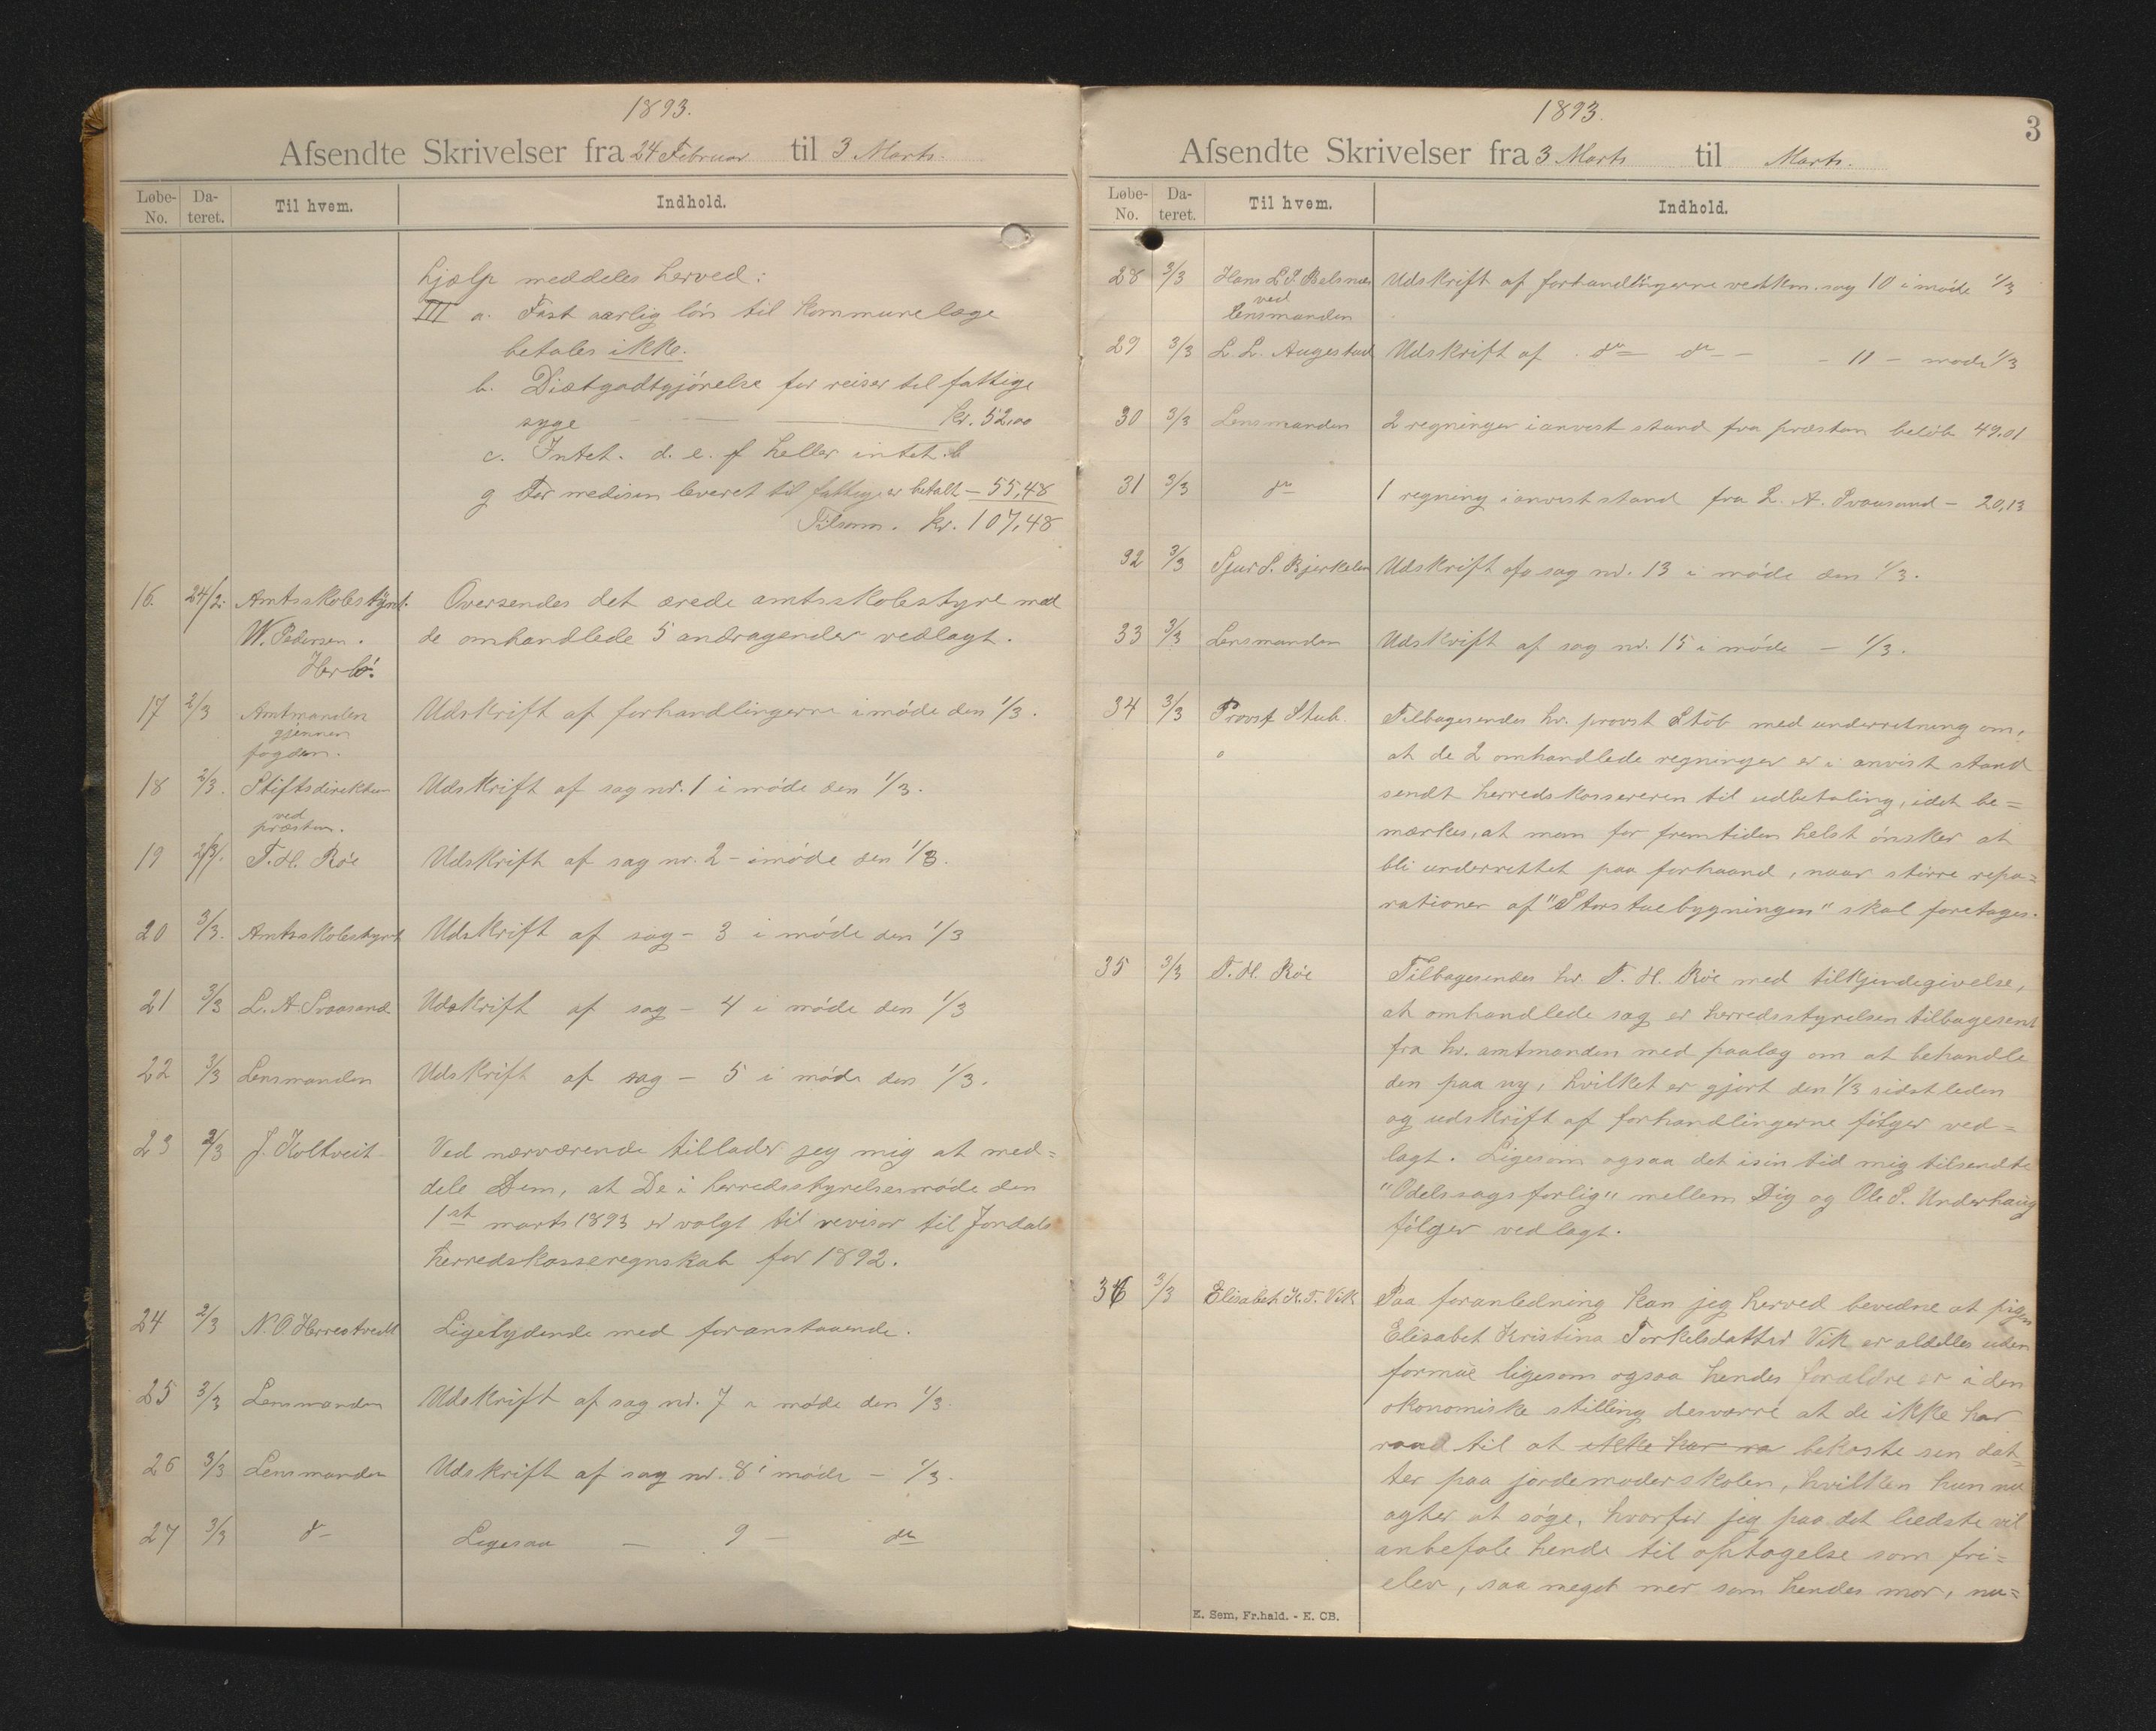 1893.
Afsendte Skrivelser fra 24 Februar til 3 Marts.
Løbe-No. Da-teret. Til hvem. Indhold.
hjælp meddeles herved:
III a. Fast aarlig lön til Kommunelæge
betales ikke.
b. Diætgodtgjörelse for reiser til fattige
syge kr. 52,00
c. Intet. d. e. f heller intet.
g For medisin leveret til fattige er betalt — 55,48
Tilsam. Kr. 107,48
16. 24/2. Amtsskolestyret. Oversendes det ærede amtsskolestyre med
W. Pedersen. de omhandlede 5 andragender vedlagt.
Her bö.
17 2/3 Amtmanden Udskrift af forhandlingerne i möde den 1/3.
gjennem
fogden.
18 2/3. Stiftsdirektion Udskrift af sag nr. 1 i möde den 1/3.
ved
præsten.
19 2/3. T. H. Röe Udskrift af sag nr. 2 - i möde den 1/3.
20 3/3. Amtsskolestyret Udskrift af sag - 3 i möde den 1/3
21 3/3 L. A. Svaasand Udskrift af sag - 4 i möde den 1/3
22 3/3 Lensmanden Udskrift af sag - 5 i möde den 1/3.
23 2/3 J. Koltveit Ved nærværende tillader jeg mig at med=
dele Dem, at De i herredsstyrelsesmöde den
1st marts 1893 er valgt til revisor til Jondals
herredskasseregnskab for 1892.
24 2/3 N. O Herrestvedt Ligelydende med foranstaaende.
25 3/3 Lensmanden Udskrift af sag nr. 7 i möde den 1/3.
26 3/3 Lensmanden Udskrift af sag nr. 8 i möde - 1/3.
27 3/3 do Ligesaa — 9 — do
1893.
3
Afsendte Skrivelser fra 3 Marts til Marts.
Løbe-No. Da-teret. Til hvem. Indhold.
28 3/3 Hans L. S. Belsnæs Udskrift af forhandlingerne vedkm. sag 10 i möde 1/3
ved
lensmanden
29 3/3 L. L. Augestad Udskrift af do do - - 11 - möde 1/3
30 3/3 Lensmanden 2 regninger i anvist stand fra præsten belöb 49,01
31 3/3 do 1 regning i anvist stand fra L. A. Svaasand - 20,13
32 3/3 Sjur S. Bjerkelen Udskrift af sag nr. 13 i möde den 1/3.
33 3/3 Lensmanden Udskrift af sag nr. 15 i möde - 1/3.
34 3/3 Provst Stub. Tilbagesendes hr. provst Stöb med underretning om,
at de 2 omhandlede regninger er i anvist stand
sendt herredskassereren til udbetaling, idet be=
mærkes, at man for fremtiden helst önsker at
bli underrettet paa forhaand, naar större repa=
rationer af "Storstuebygningen" skal foretages.
35 3/3 T. H. Röe Tilbagesendes hr. T. H. Röe med tilkjendegivelse,
at omhandlede sag er herredsstyrelsen tilbagesent
fra hr. amtmanden med paalæg om at behandle
den paa ny, hvilket er gjort den 1/3 sidstleden
og udskrift af forhandlingerne fölger ved=
lagt. Ligesom ogsaa det i sin tid mig tilsendte
"Odelssagsforlig" mellem Dig og Ole S. Underhaug
fölger vedlagt.
36 3/3 Elisabet K. T. Vik Paa foranledning kan jeg herved bevidne at pigen
Elisabet Kristina Torkelsdatter Vik er aldelles uden
formue ligesom ogsaa hendes forældre er i den
økonomiske stilling desværre at de ikke har
raad til at ikke har ra bekoste sen dat=
ter paa jordemoderskolen, hvilken hun nu
agter at söge, hvorfor jeg paa det bedste vil
anbefale hende til optagelse som fri=
elev, saa meget mer som hendes mor, nu=
E. Sem, Fr.hald. - E. CB.